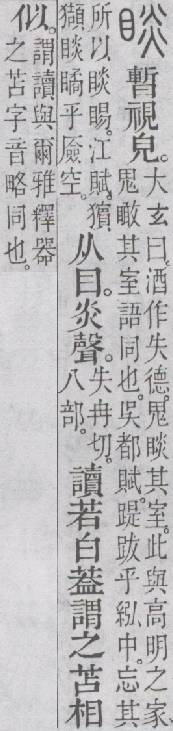 睒 暫視皃。大玄曰。酒作失德。鬼睒其室。此與高明之家、鬼瞰其室語同也。吳都賦。踶跋乎紭中。忘其
所以睒賜。江賦。獱獺睒瞲乎厱空。从目。炎聲。失冉切。八部。讀若白葢謂之苫相
似。謂讀與爾雅釋器之苫字音略同也。